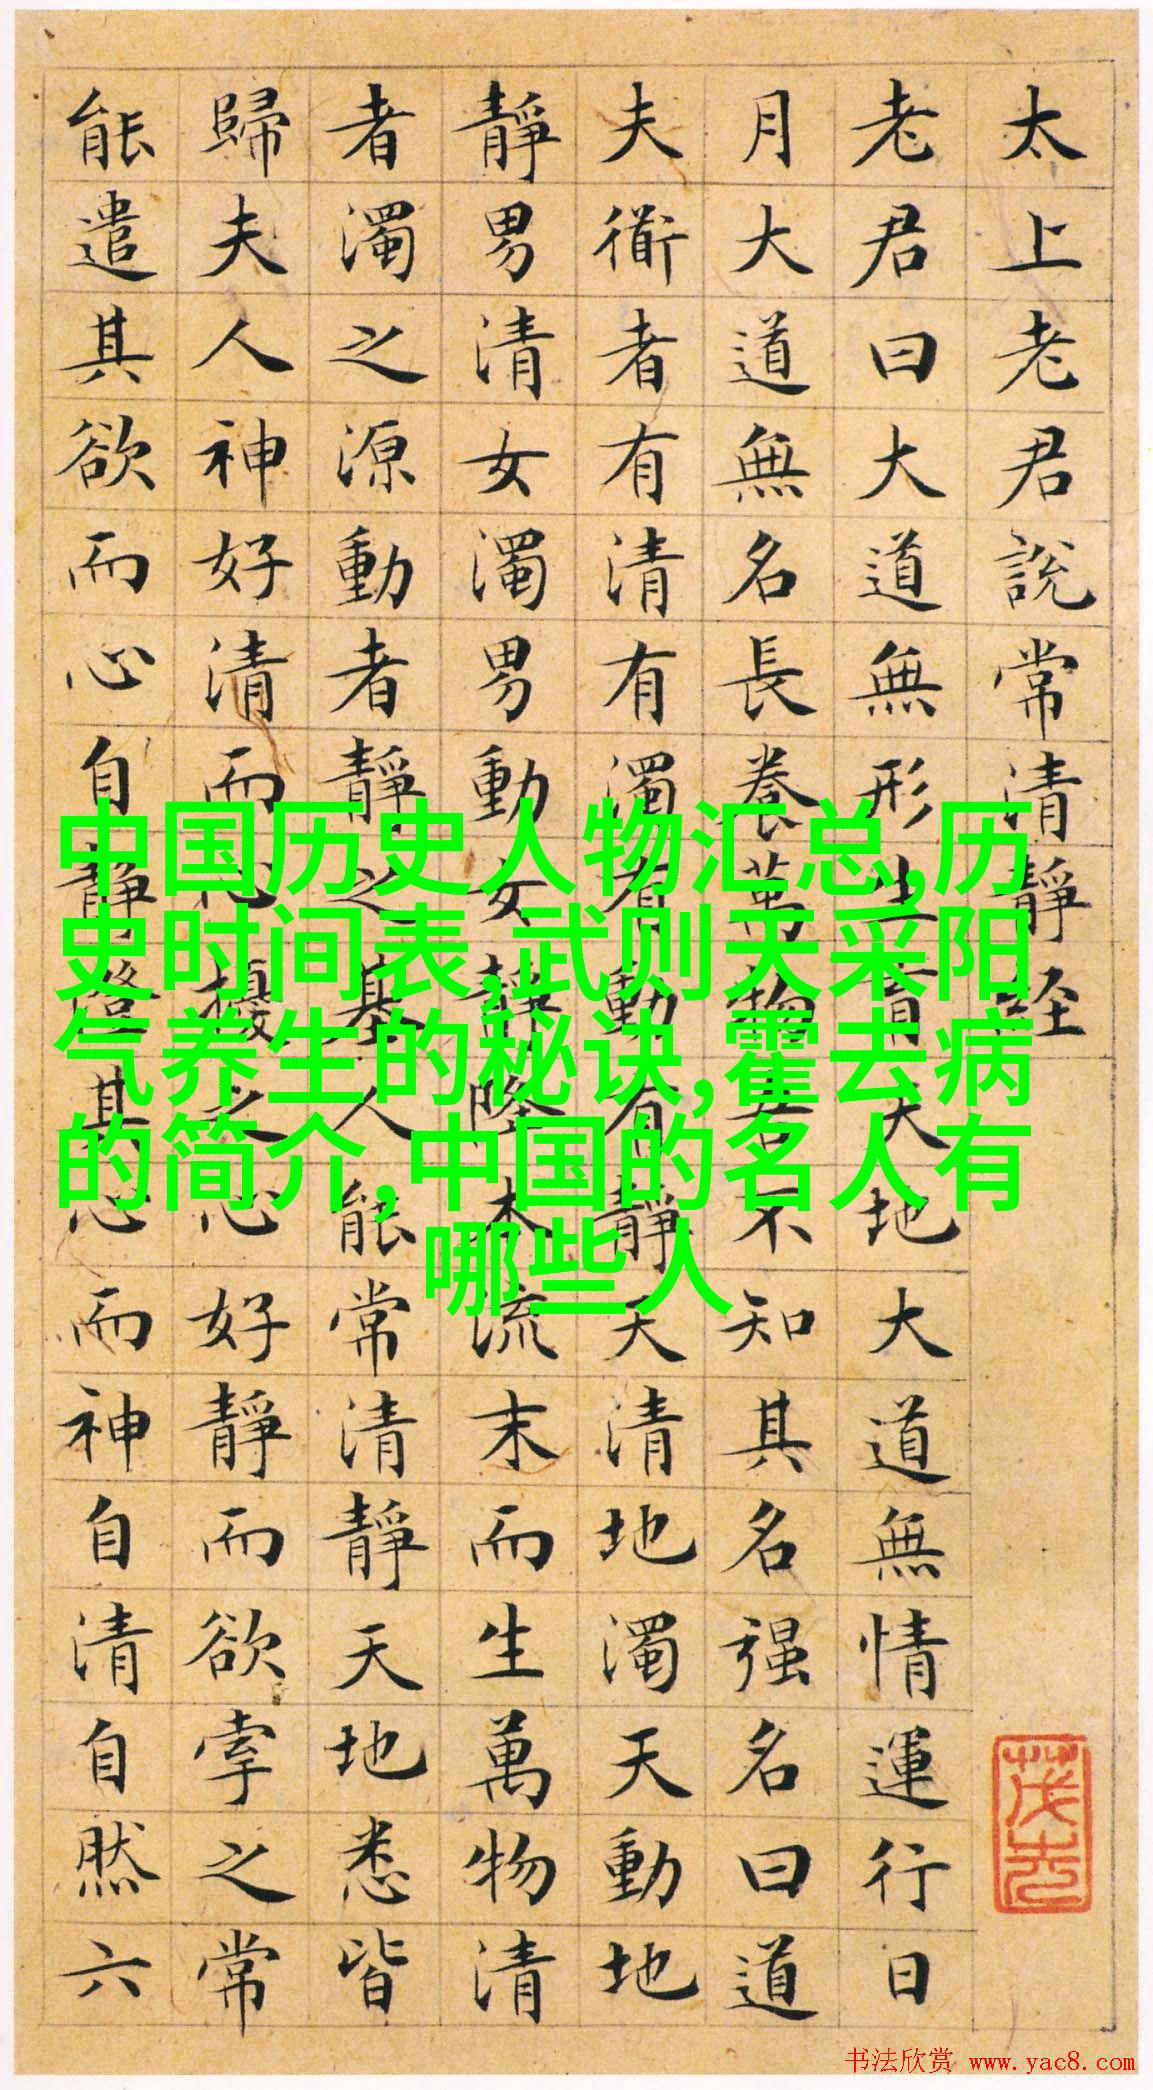 太上老君說常清靜经
老君曰大道無形生育天地大道無情運行日
月大道無名長養萬物吾不知其名强名曰道
夫衜者有清有濁有動有靜天清地濁天動地
靜男清女濁男動女靜降本流末而生萬物清
者濁之源動者靜之基人能常清靜天地悉皆
歸夫人神好清而心擾之心好靜而欲牽之常
能遣其欲而心自靜澄其心而神自清自然六
中国历史人物汇总,历
史时间表,武则天采阳
气养生的秘诀,霍去病
的简介,中国的名人有
哪些人
书法欣赏 www.yac8.com